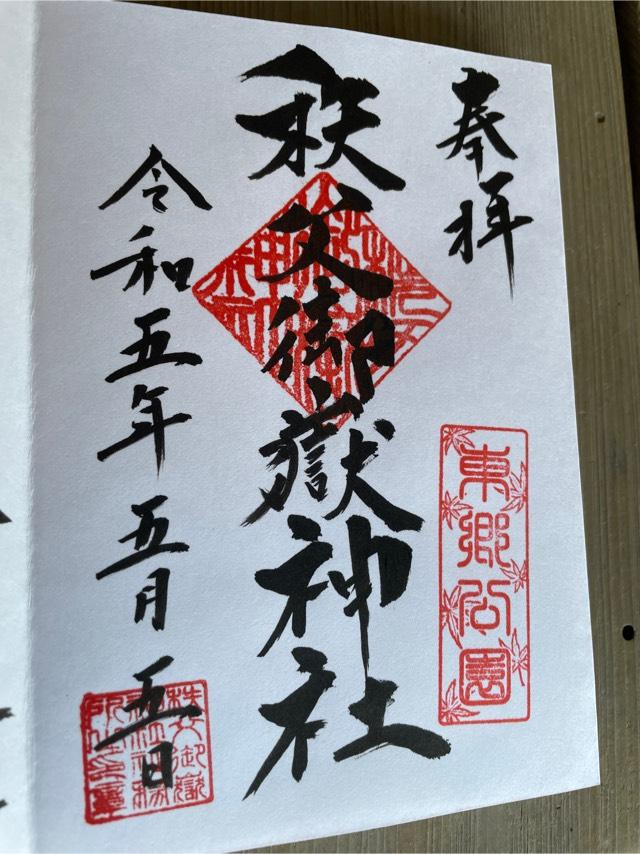 奉拝
東郷公園
秩父御嶽神社
令和五年五月五日